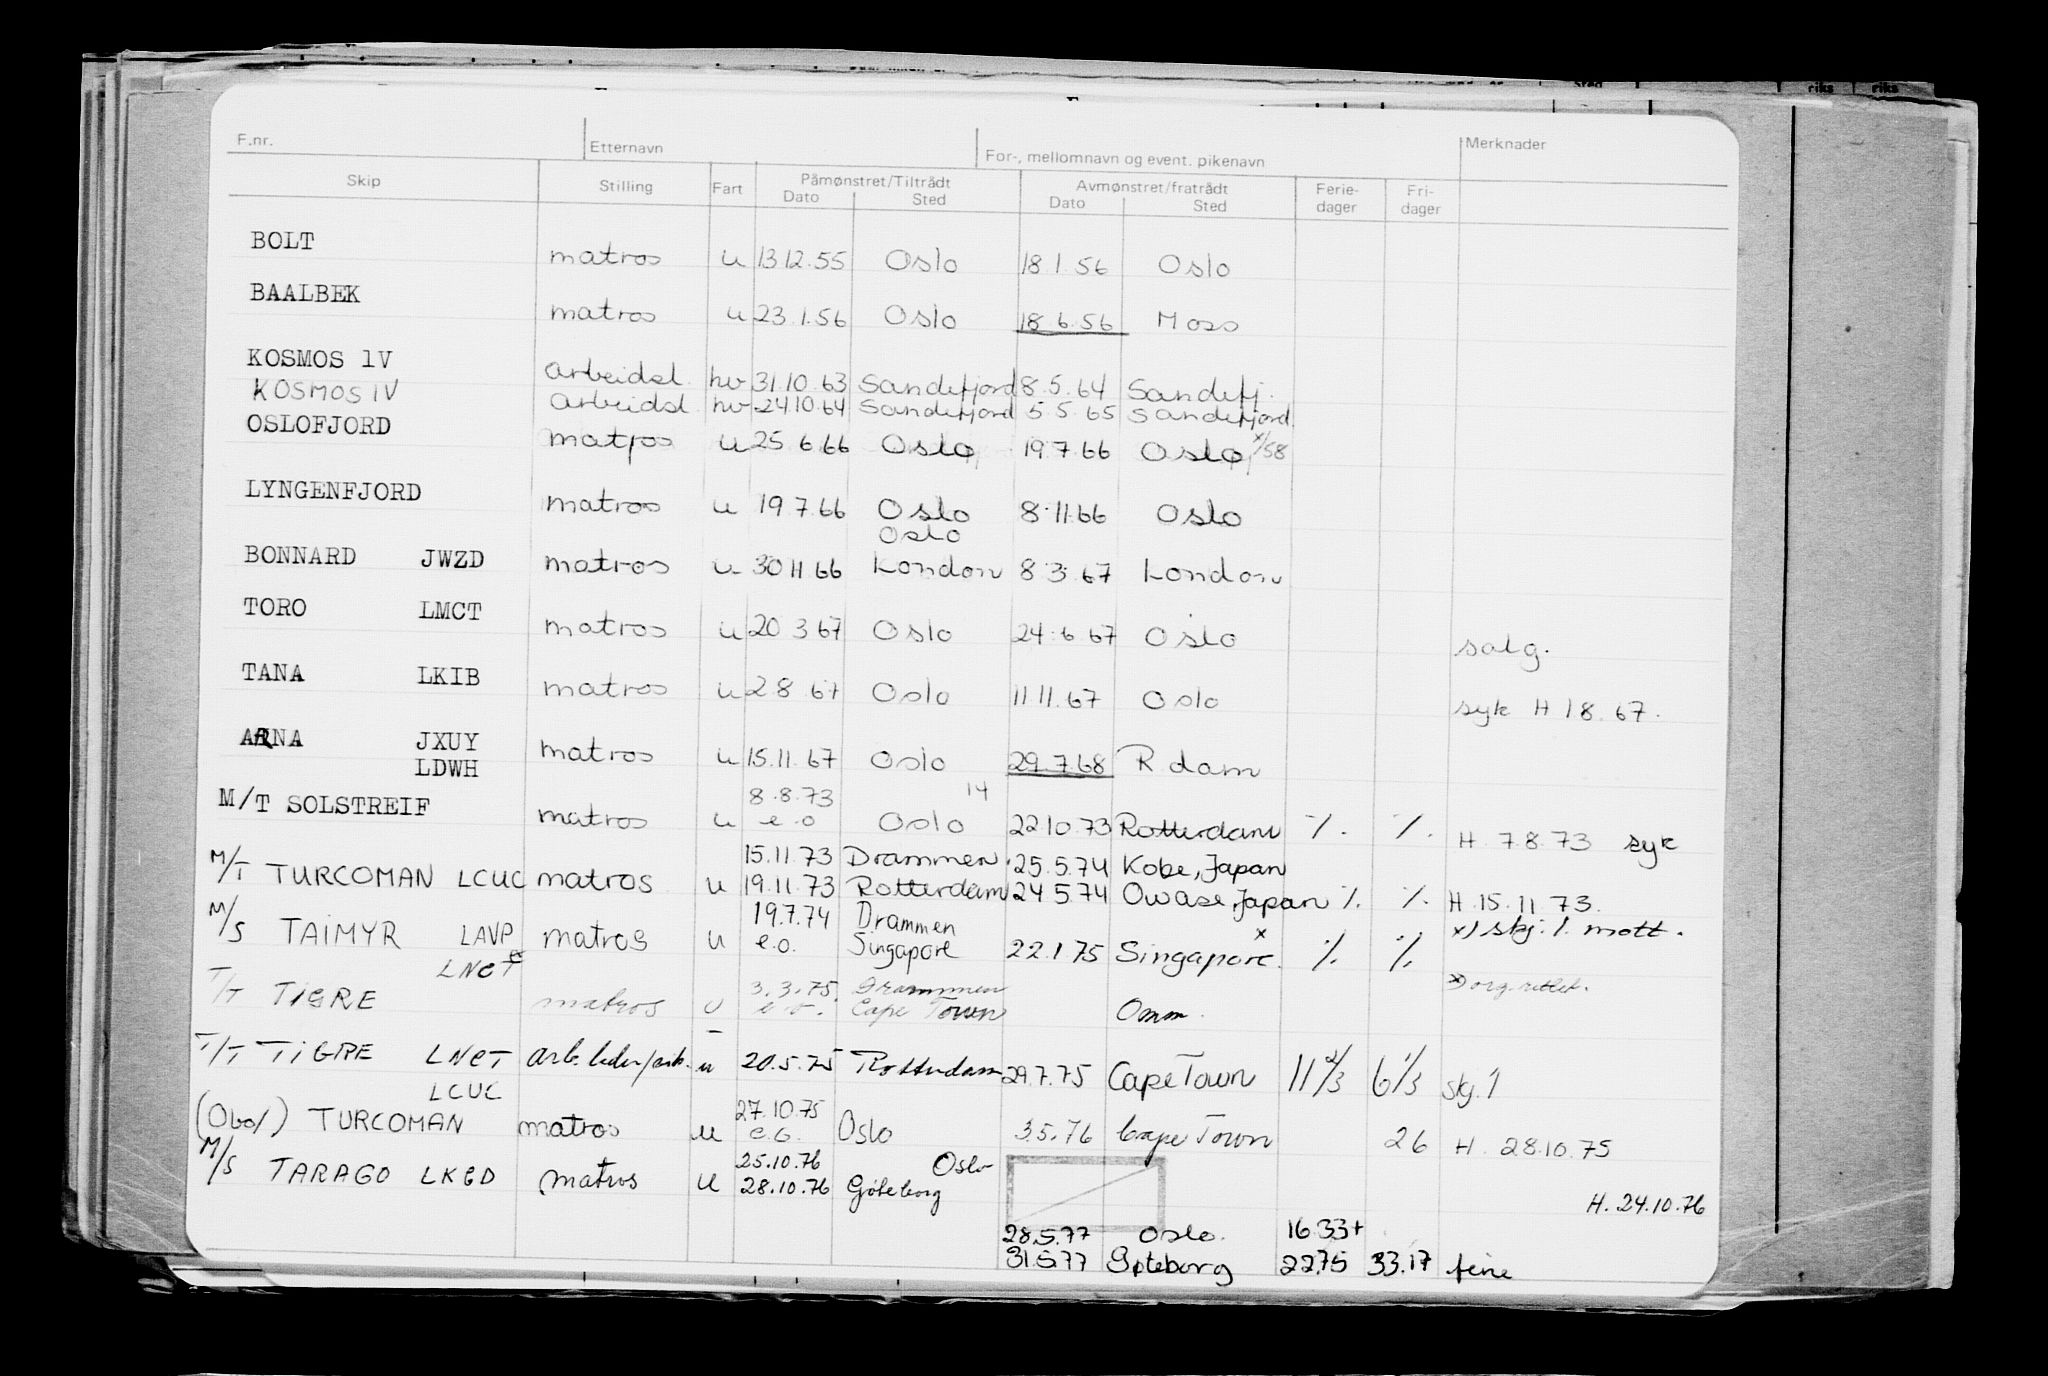 riks riks
F.nr. Etternavn For-, mellomnavn og event. pikenavn Merknader
Skip Stilling Fart Påmønstret/Tiltrådt Avmønstret/fratrådt Ferie- Fri-
Dato Sted Dato Sted dager dager
BOLT matros u 13 12.55 Oslo 18.1.56 Oslo
BAALBEK matros u 23.1.56 Oslo 18.6.56 Moss
KOSMOS 1V arbeidsl. hv 31.10.63 Sandefjord 8.5.64 Sandefj.
KOSMOS IV arbeidsl. hv 24.10.64 Sandefjord 5.5.65 Sandefjord.
OSLOFJORD matros u 25.6.66 Oslo 19.7.66 Oslo x/58
LYNGENFJORD matros u 19.7.66 Oslo 8.11.66 Oslo
Oslo
BONNARD JWZD matros u 30 11 66 London 8.3.67 London
TORO LMCT matros u 20 3 67 Oslo 24.6.67 Oslo salg.
TANA LKIB matros u 2.8.67 Oslo 11.11.67 Oslo syk H 1 8. 67.
ARNA JXUY matros u 15.11.67 Oslo 29.7.68 R.dam
LDWH
8.8.73 14
M/T SOLSTREIF matros u e.o Oslo 22.10.73 Rotterdam %. %. H. 7.8.73 syk
15.11.73 Drammen 25.5.74 Kobe, Japan
M/T TURCOMAN LCUC matros u 19.11.73 Rotterdam 24.5.74 Owase, Japan %. %. H.15.11.73.
19.7.74 Drammen x) skj. 1. mott.
M/S TAIMYR LAVP matros u e.o. Singapore 22.1.75 Singapore. x %. %.
LNCT 3.3.75. Drammen x) org. rettet.
T/T TIGRE matros u e.o. Cape Town Omm.
T/T TIGRE LNCT arb.leder/ u 20.5.75 Rotterdam 29.7.75 Cape Town 11 2/3 6 1/3 skj.1
LCUC 27.10.75
(Obo/) TURCOMAN matros u e.o. Oslo 3.5.76 Cape Town 26 H. 28.10.75
25.10.76 Oslo
M/S TARAGO LKBD matros u 28.10.76 Göteborg H. 24.10.76
28.5.77 Oslo. 16.33+
31.5.77 Gøteborg 22.75 33.17 ferie